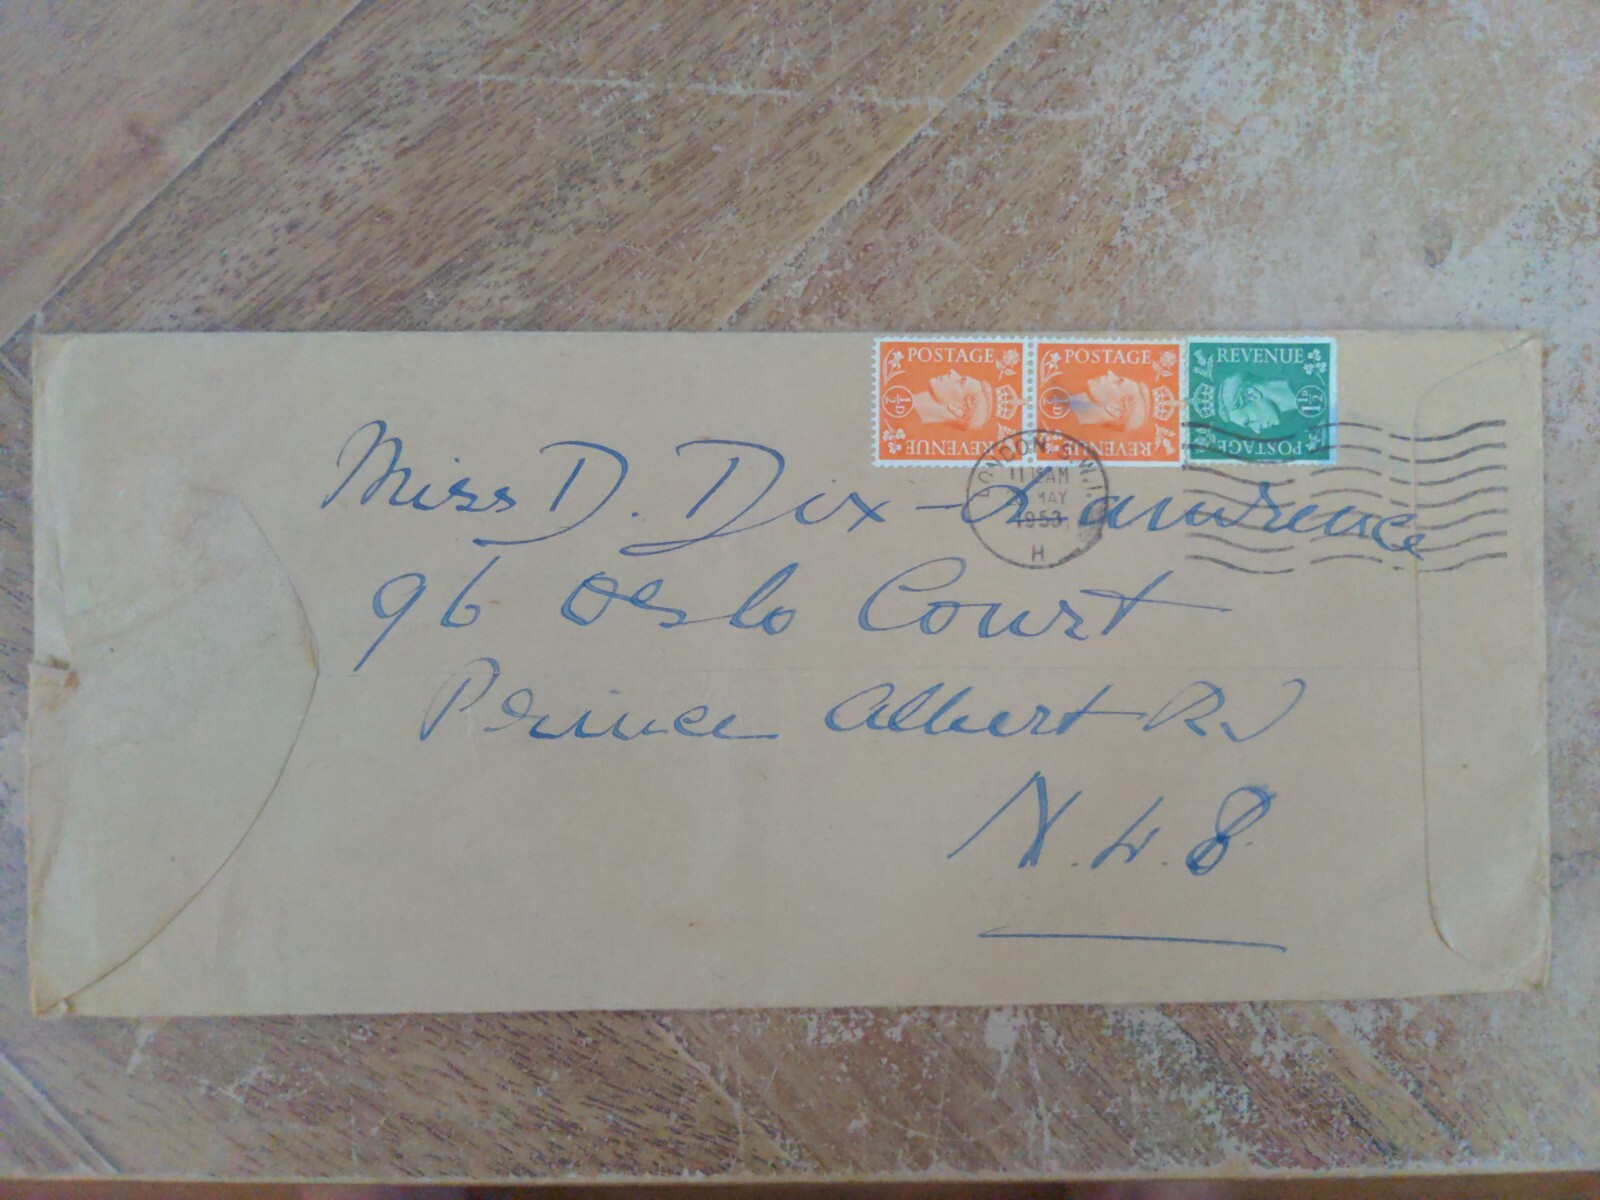 POSTAGE REVENUE ½D
POSTAGE REVENUE ½D
REVENUE POSTAGE 1½D
LONDON S.W.1.
11 15AM
MAY
1953
H
Miss D. Dix-Lawrence
96 Oslo Court
Prince Albert Rd
N.W.8.